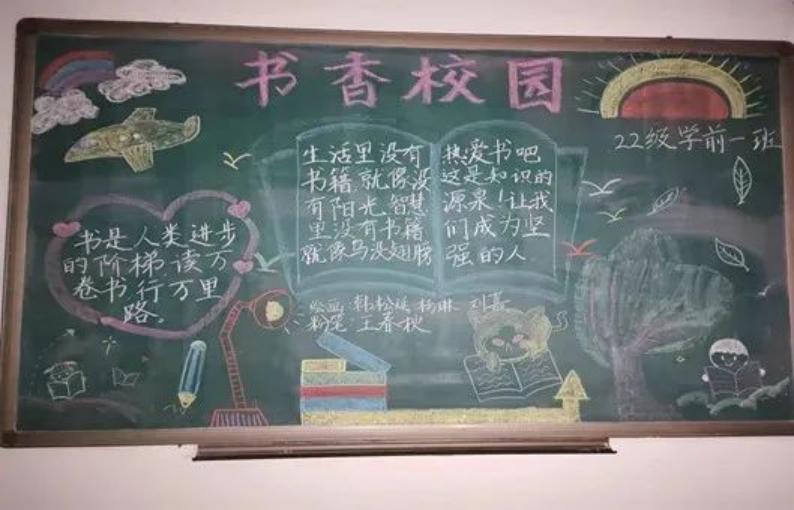 书香校园
22级学前一班
生活里没有
书籍就像没
有阳光智慧
里没有书籍
就像马没翅膀
热爱书吧
这是知识的
源泉!让我
们成为坚
强的人
书是人类进步
的阶梯读万
卷书行万里
路。
绘画:韩松 杨琳 刘
粉笔 王春秋